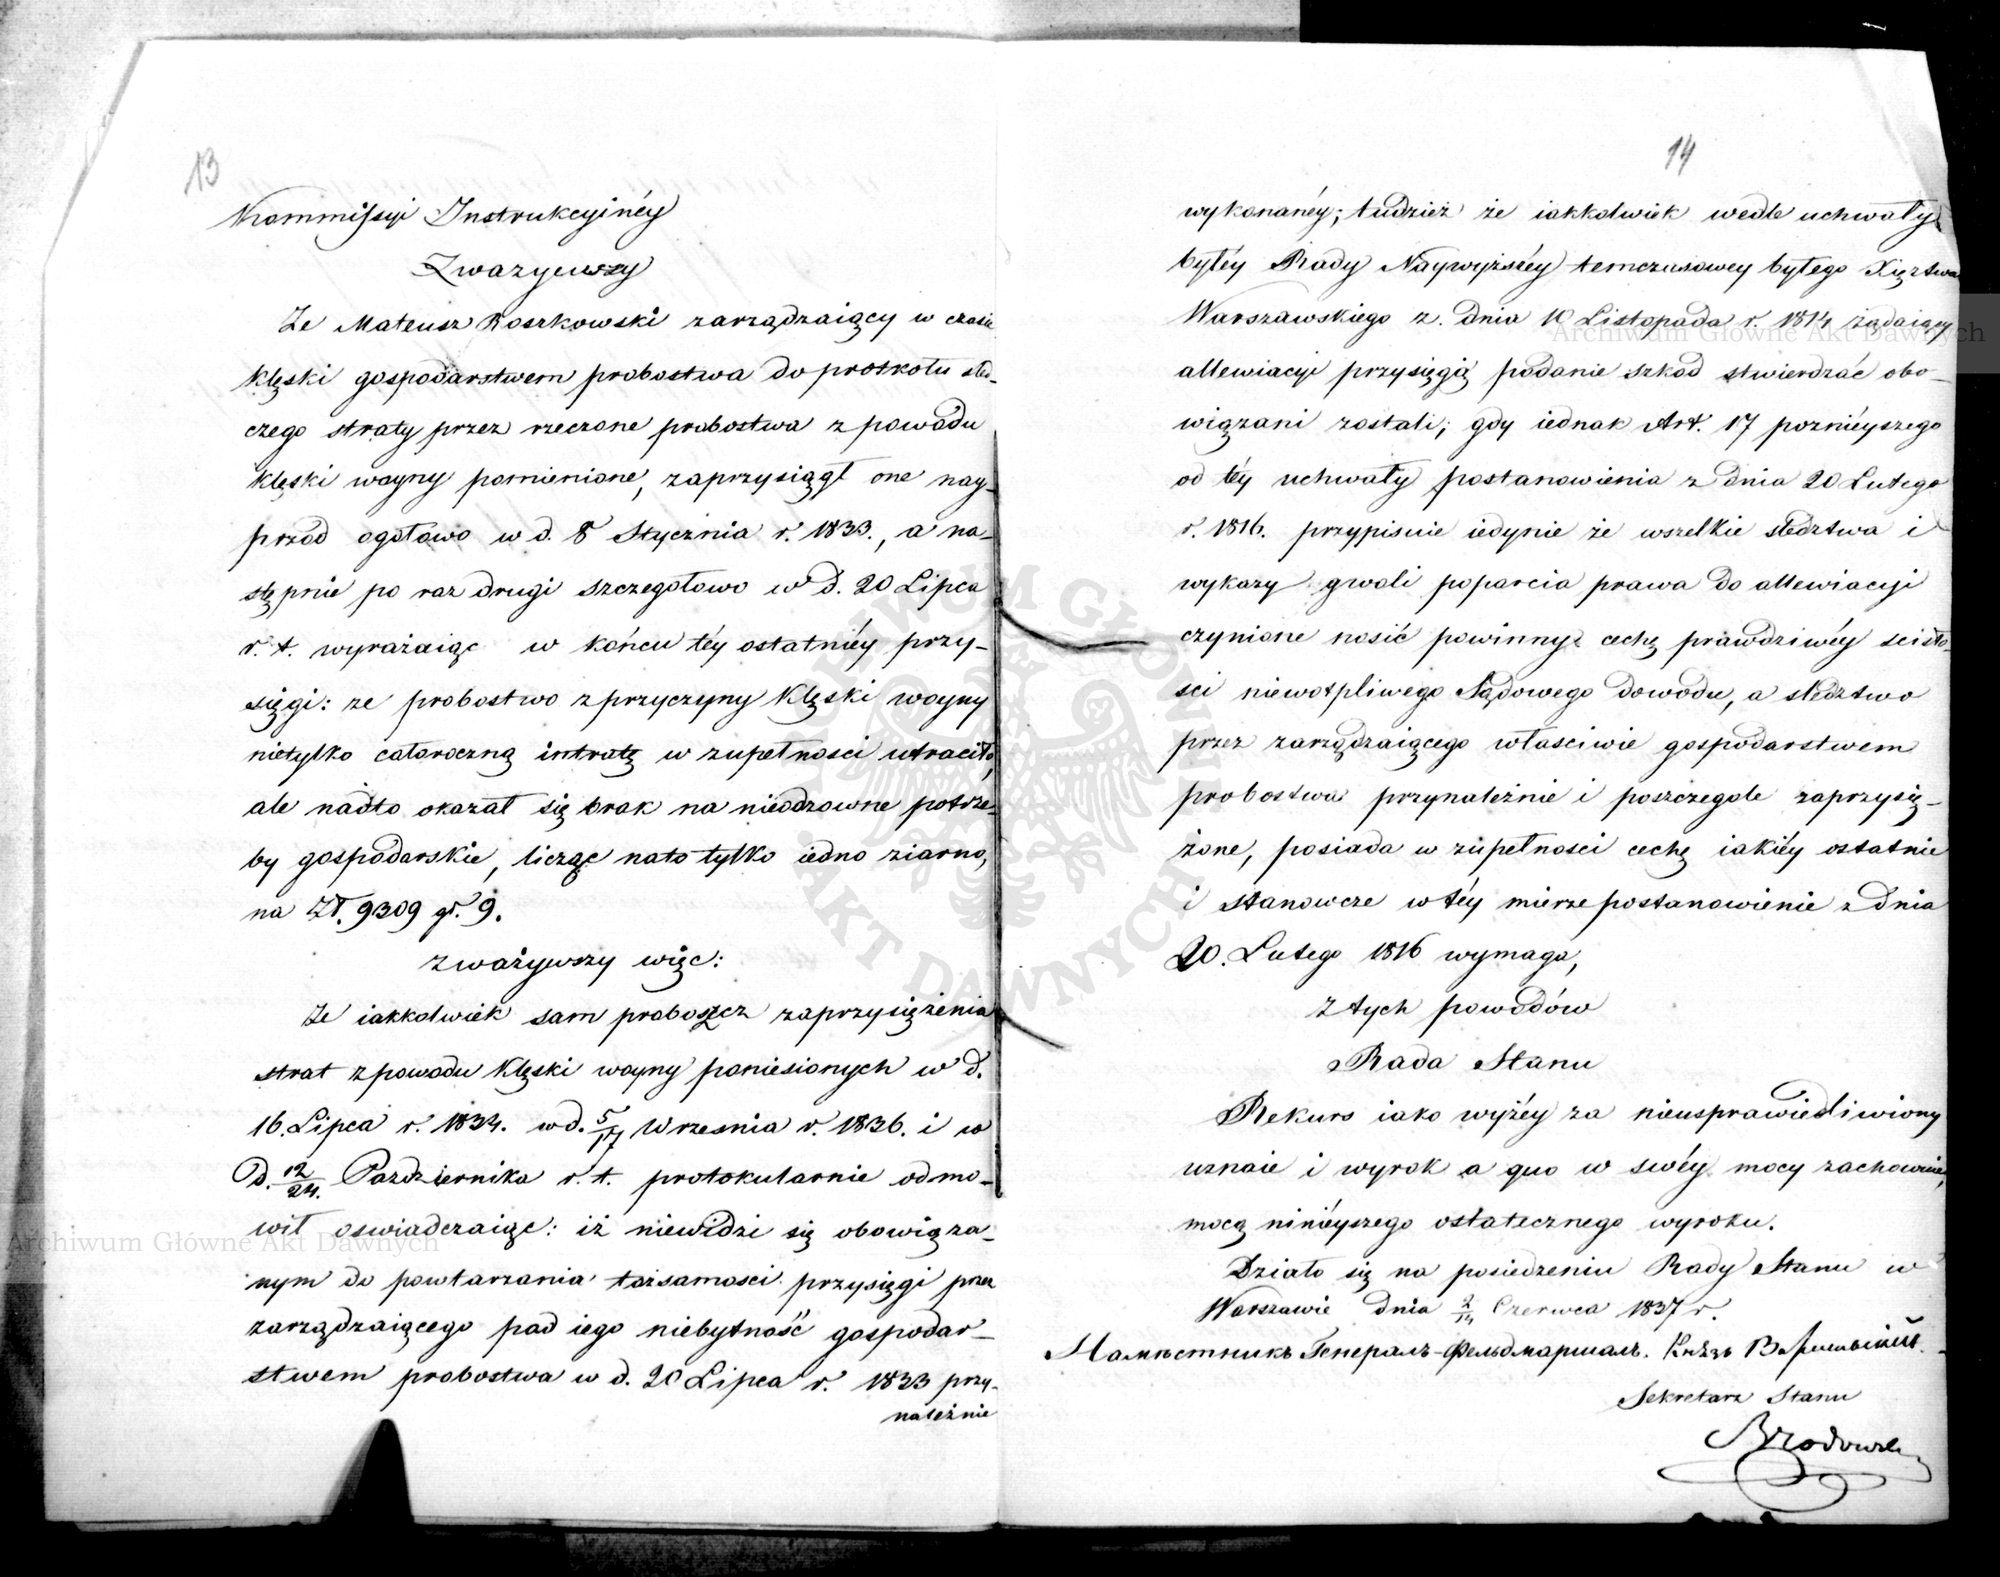 13
Kommissyi Instrukcyinéy
Zwazywszy
Ze Mateusz Roszkowski zarządzaiący w czasie
klęski gospodarstwem probostwa do protkołu śled-
czego straty przez rzeczone probostwa z powodu
klęski woyny pomienione, zaprzysiągł one nay-
przód ogołowo w d. 8 Stycznia r. 1833., a na-
stępnie po raz drugi szczegołowo w d. 20 Lipca
r. t. wyrażaiąc w końcu téy ostatniéy przy-
sięgi: ze probostwo z przyczyny klęski woyny
nietylko całoroczną intratę w zupełnosci utraciło,
ale nadto okazał się brak na nieodzowne potrze-
by gospodarskie, licząc na to tylko iedno ziarno,
na Zł. 9309 gr. 9.
zważywszy więc:
Ze iakkolwiek sam proboszcz zaprzysiężenia
strat z powodu klęski woyny poniesionych w d.
16. Lipca r. 1834. w d. 5/17 Wrzesnia r. 1836. i w
d. 12/24. Pazdziernika r. t. protokularnie odmo-
wił oswiadczaiąc: iż niewidzi się obowiąza-
nym do powtarzania tożsamosci przysięgi przez
zarządzaiącego pod iego niebytność gospodar-
stwem probostwa w d. 20 Lipca r. 1833 przy-
należnie
14
wykonanéy; tudzież że iakkolwiek wedle uchwały
byłéy Rady Naywyższéy temczasowey byłego Xięztwa
Warszawskiego z. dnia 10 Listopada r. 1814 żądaiący
allewiacyi przysięgą podanie szkod stwierdzać obo-
wiązani zostali; gdy iednak Art. 17 poznieyszego
od téy uchwały postanowienia z dnia 20 Lutego
r. 1816. przypisuie iedynie że wszelkie sledztwa i
wykazy gwoli poparcia prawa do allewiacyi
czynione nosić powinny cechę prawdziwéy scisło-
sci niewątpliwego Sądowego dowodu, a sledztwo
przez zarządzaiącego własciwie gospodarstwem
probostwa przynależnie i poszczegole zaprzysię-
żone, posiada w zupełnosci cechę iakiéy ostatnie
i stanowcze w téy mierze postanowienie z dnia
20. Lutego 1816 wymaga,
Z tych powodów
Rada Stanu
Rekurs iako wyżéy za nieusprawiedliwiony
uznaie i wyrok a quo w swéy mocy zachowuie,
mocą ninieyszego ostatecznego wyroku.
Działo się na posiedzeniu Rady Stanu w
Warszawie dnia 2/14 Czerwca 1837 r.
Намѣстникъ Генералъ-Фельдмаршалъ. Князь Варшавскій
Sekretarz Stanu
Brodowski
Archiwum Główne Akt Dawnych
Archiwum Główne Akt Dawnych
ARCHIWUM GŁÓWNE · AKT DAWNYCH ·